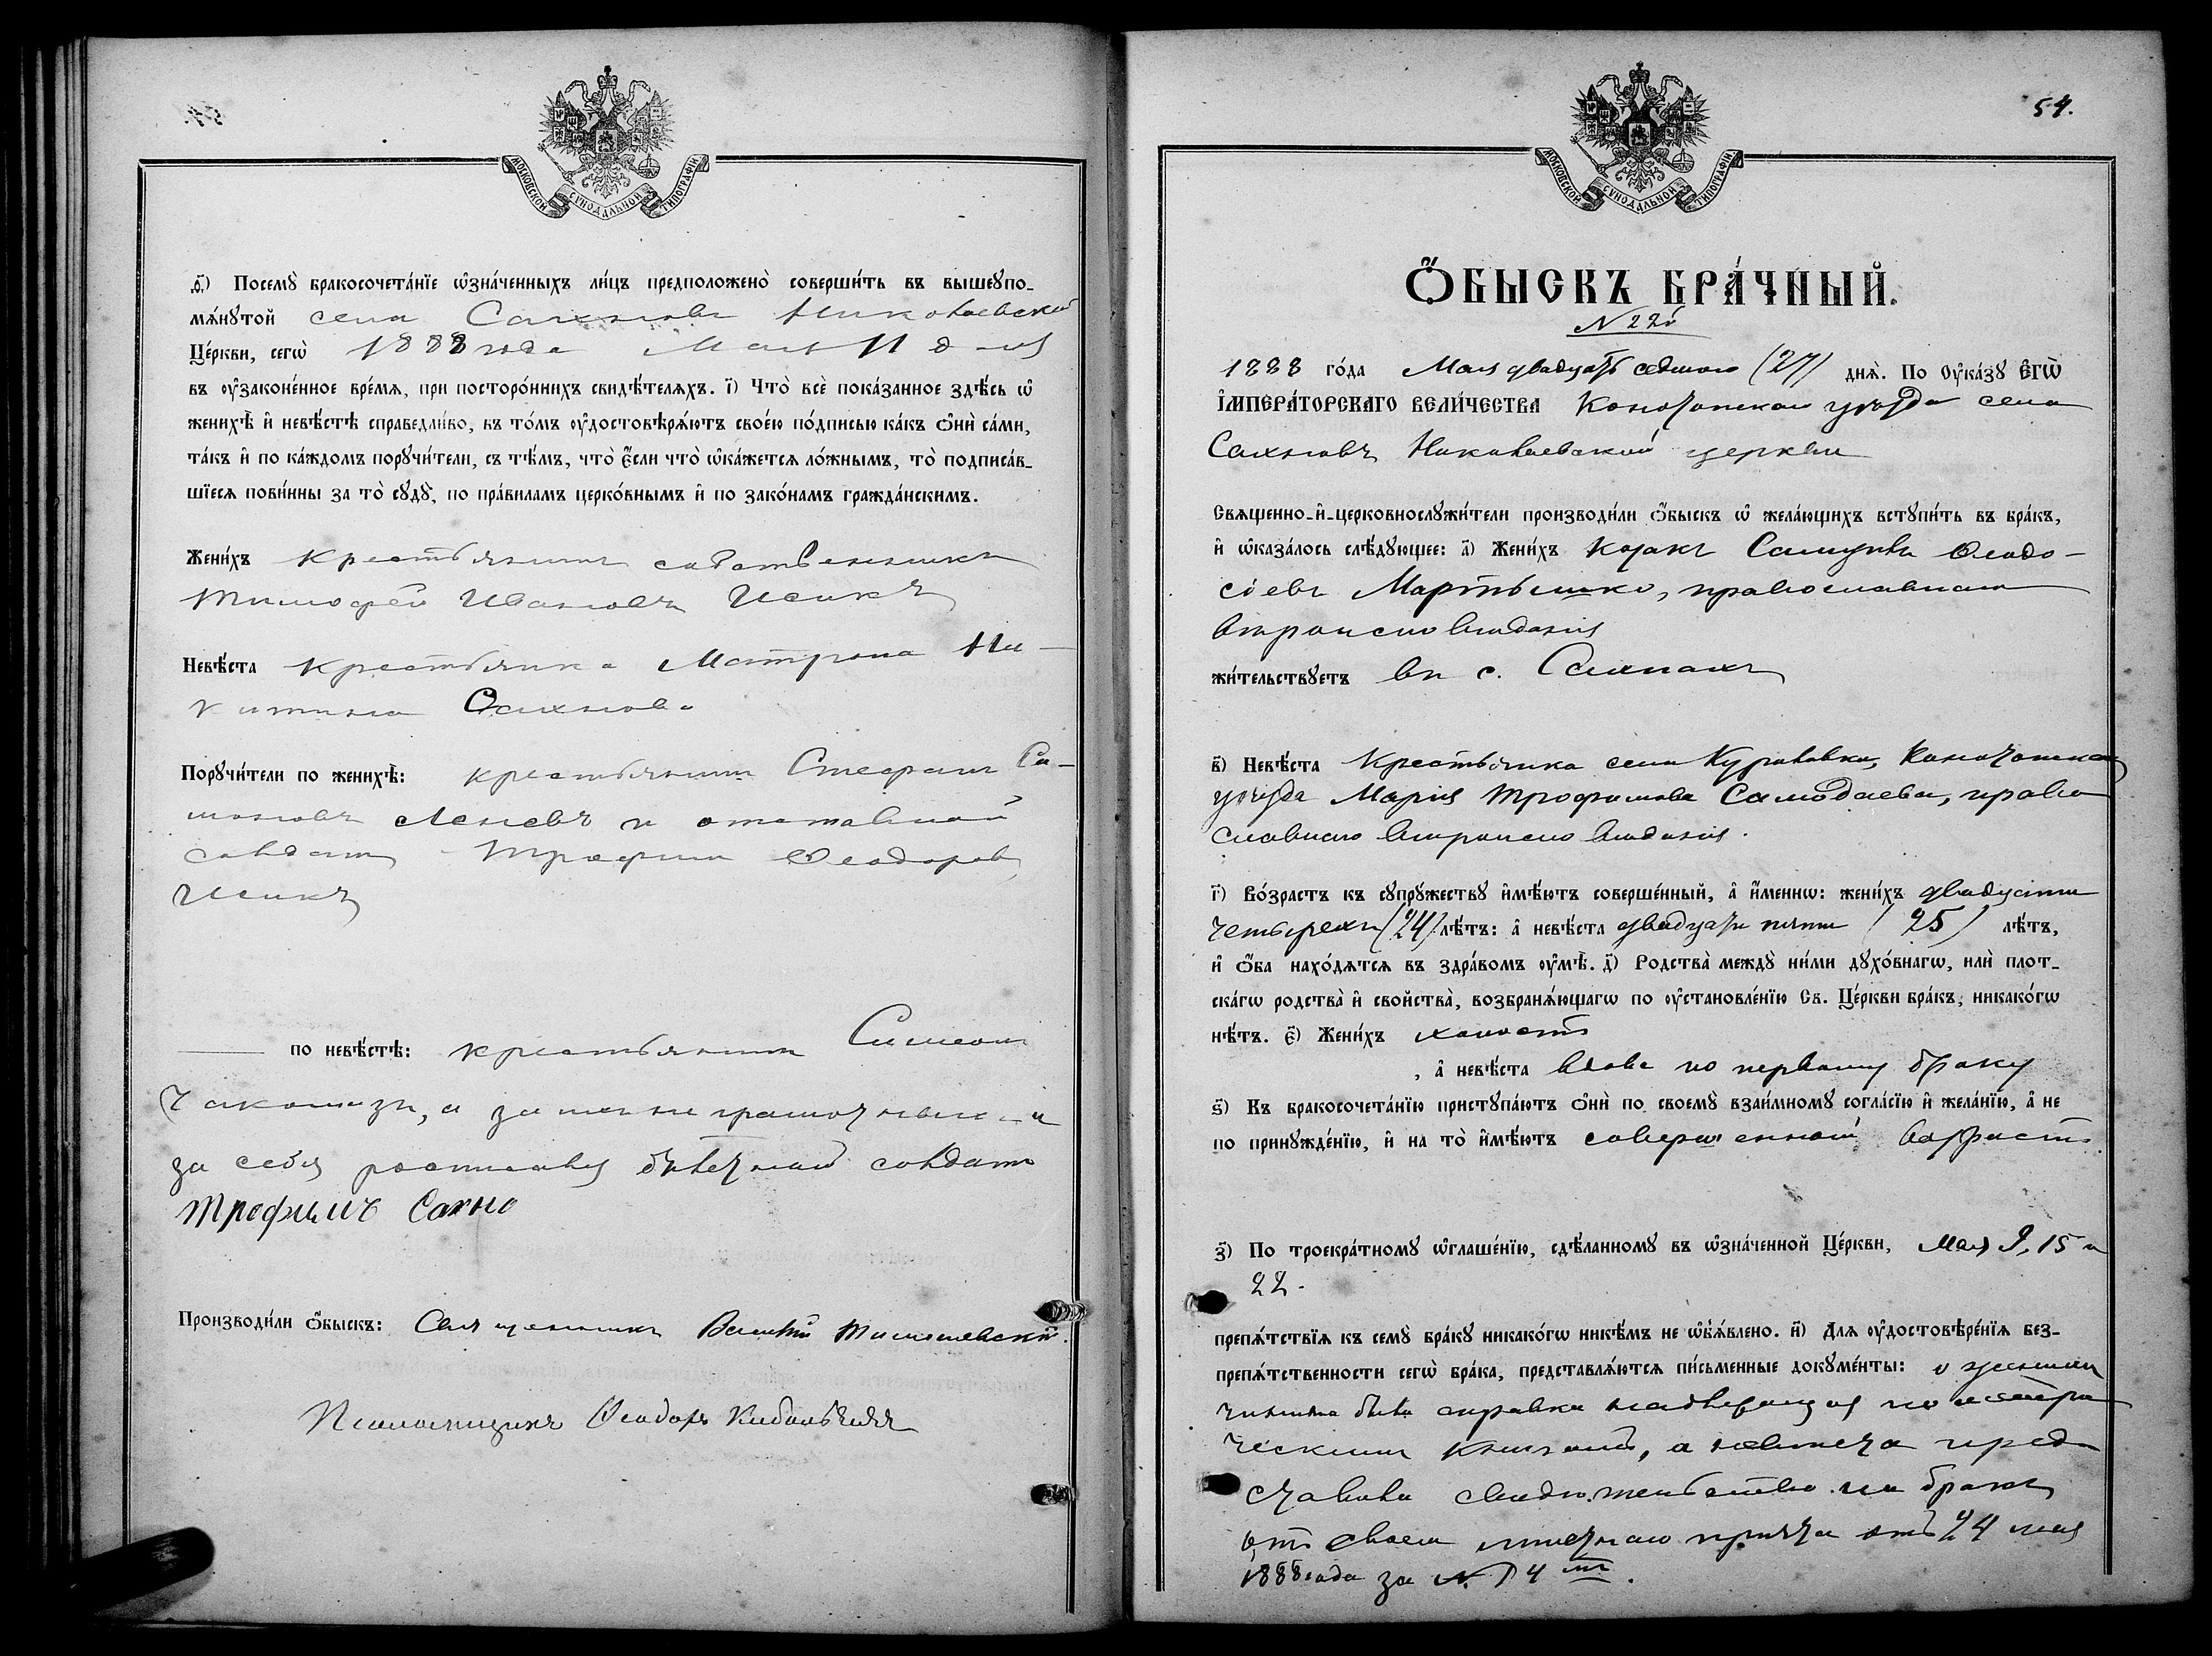 МОСКОВСКОЙ СѴНОДАЛЬНОЙ ТИПОГРАФІИ
ѳ҃) Посемꙋ̀ бракосочета́нїе ѡ҆зна́ченныхъ ли́цъ предположено̀ соверши́ть въ вышеꙋпо-
мѧ́нꙋтой села Сахновъ Николаевской
Це́ркви, сегѡ̀ 1888 года Мая 11 дня
въ ᲂу҆законе́нное вре́мѧ, при посторо́ннихъ свидѣ́телѧхъ. і҃) Что̀ всѐ пока́занное здѣ́сь ѡ҆
женихѣ̀ и҆ невѣ́стѣ справедли́во, въ то́мъ ᲂу҆достовѣрѧ́ютъ свое́ю по́дписью ка́къ ѻ҆нѝ са́ми,
та́къ и҆ по ка́ждомъ порꙋчи́тели, съ тѣ́мъ, что̀ є҆́сли что̀ ѡ҆ка́жетсѧ ло́жнымъ, то̀ подписа́в-
шїесѧ пови́нны за то̀ сꙋдꙋ̀, по пра́виламъ церко́внымъ и҆ по зако́намъ гражда́нскимъ.
Жени́хъ крестьянинъ собственникъ
Тимофей Ивановъ Исикъ
Невѣ́ста крестьянка Матрона Ни-
китина Сахнова
Порꙋчи́тели по женихѣ̀: крестьянинъ Стефанъ Си-
моновъ и отставной
солдатъ Трофимъ Ѳеодоровъ
Исикъ
по невѣ́стѣ: крестьянинъ Симеонъ
а за неграмотныхъ и
за себя росписался билетный солдатъ
Трофимъ Сахно
Производи́ли ѻ҆́быскъ: Священникъ
Псаломщикъ Ѳеодоръ Кибальчичъ
54.
МОСКОВСКОЙ СѴНОДАЛЬНОЙ ТИПОГРАФІИ
Ѻ҆́БЫСКЪ БРА́ЧНЫЙ.
N 22й
1888 го́да Мая двадцать седьмого (27) днѧ̀. По Оу҆ка́зꙋ Є҆гѡ̀
І҆МПЕРА́ТОРСКАГО ВЕЛИ́ЧЕСТВА Конотопскаго уѣзда села
Сахновъ Николаевской церкви
Свѧщенно-и҆-церковнослꙋжи́тели производи́ли ѻ҆́быскъ ѡ҆ жела́ющихъ встꙋпи́ть въ бра́къ,
и҆ ѡ҆каза́лось слѣ́дꙋющее: а҃) Жени́хъ козакъ Самуилъ Ѳеодо-
сіевъ Мартыненко, православнаго
вѣроисповѣданія
жи́тельствꙋетъ въ с. Сахнахъ
в҃) Невѣ́ста Крестьянка села Куриловки, Конотопскаго
уѣзда Марія Трофимова Самодаева, право
славнаго вѣроисповѣданія.
г҃) Во́зрастъ къ сꙋпрꙋ́жествꙋ и҆мѣ́ютъ соверше́нный, а҆ и҆́меннѡ: жени́хъ двадцати
четырехъ (24) лѣ́тъ: а҆ невѣ́ста двадцати пяти (25) лѣ́тъ,
и҆ ѻ҆́ба нахо́дѧтсѧ въ здра́вомъ ᲂу҆мѣ̀. д҃) Родства̀ междꙋ̀ ни́ми дꙋхо́внагѡ, илѝ плот-
ска́гѡ родства̀ и҆ свойства̀, возбранѧ́ющагѡ по ᲂу҆становле́нїю Св. Це́ркви бра́къ, никако́гѡ
нѣ́тъ. є҃) Жени́хъ холостъ
, а҆ невѣ́ста вдова по первому браку
ѕ҃) Къ бракосочета́нїю пристꙋпа́ютъ ѻ҆нѝ по своемꙋ̀ взаи́мномꙋ согла́сїю и҆ жела́нїю, а҆ не
по принꙋжде́нїю, и҆ на то̀ и҆мѣ́ютъ совершенный возрастъ
з҃) По троекра́тномꙋ ѡ҆глаше́нїю, сдѣ́ланномꙋ въ ѡ҆зна́ченной Це́ркви, Мая 9, 15 и
22.
препѧ́тствїѧ къ семꙋ̀ бра́кꙋ никако́гѡ никѣ́мъ не ѡ҆б̾ѧ́влено. и҃) Длѧ ᲂу҆достовѣре́нїѧ без-
препѧ́тственности сегѡ̀ бра́ка, представлѧ́ютсѧ пи́сьменные докꙋме́нты: о женихѣ
была справка по метри
ческимъ книгамъ, а невѣста пред
ставила свидѣтельство на бракъ
отъ своего мѣстнаго причта отъ 24 мая
1888 года за N 74 мъ.